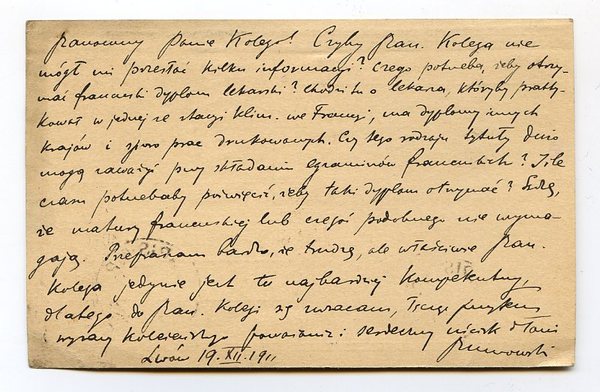 Szanowny Panie Kolego! Czyby Szan. Kolega nie
mógł mi przesłać kilku informacji? Czego potrzeba, żeby otrzy-
mać francuski dyplom lekarski? Chodzi tu o lekarza, któryby prakty-
kował w jednej ze stacyi klim. we Francyi, ma dyplomy innych
krajów i sporo prac drukowanych. Czy tego rodzaju tytuły dużo
mogą zaważyć przy składaniu egzaminów francuskich? Ile
czasu potrzebaby poświęcić, żeby taki dyplom otrzymać? Sądzę,
że matury francuskiej lub czegoś podobnego nie wyma-
gają. Przepraszam bardzo, że trudzę, ale właściwie Szan.
Kolega jedynie jest tu najbardziej kompetentny,
dlatego do Szan. Kolegi się zwracam, Łączę
wyrazy koleżeńskiego poważania i serdeczny uścisk dłoni
Lwów 19.XII.1911